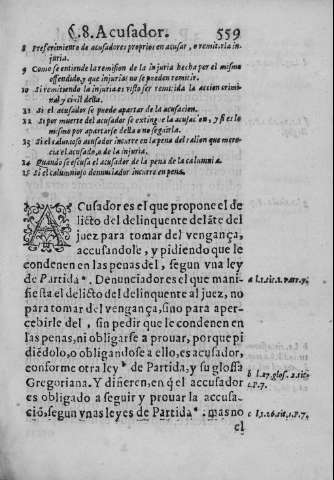 §.8. Acusador. 559
8 Preferimiento de acusadores propios en acusar, o remitir la in-
juria.
9 Como se entiende la remision de la injuria hecha por el mismo
offendido, y que injurias no se pueden remitir.
10 Si remitiendo la injuria es visto ser remitida la accion crimi-
nal y civil della.
11 Si el acusador se puede apartar de la acusacion.
12 Si por muerte del acusador se extingue la acusacion, y si es lo
mismo por apartarse della o no seguirla.
13 Si el calunioso acusador incurre en la pena del talion que mere-
cia el acusado, o de la injuria.
14 Quando se escusa el acusador de la pena de la calumnia.
15 Si el calumnioso denunciador incurre en pena.
ACusador es el que propone el de
licto del delinquente delãte del
juez para tomar del vengança,
accusandole, y pidiendo que le
condenen en las penas del, segun vna ley
de Partida ª. Denunciador es el que mani-
fiesta el delicto del delinquente al juez, no
para tomar del vengança, sino para aper-
cebirle del, sin pedir que le condenen en
las penas, ni obligarse a prouar, porque pi
diẽdolo, o obligandose a ello, es acusador,
conforme otra ley ᵇ de Partida, y su glossa
Gregoriana. Y difieren, en q̃ el accusador
es obligado a seguir y prouar la accusa-
ciõ, segun vnas leyes de Partida ᶜ. mas no
el
a l.1.tit.1.part.7.
b l.27.glos.2.tit.
1.P.7.
c l.1.26.tit.1.P.7.